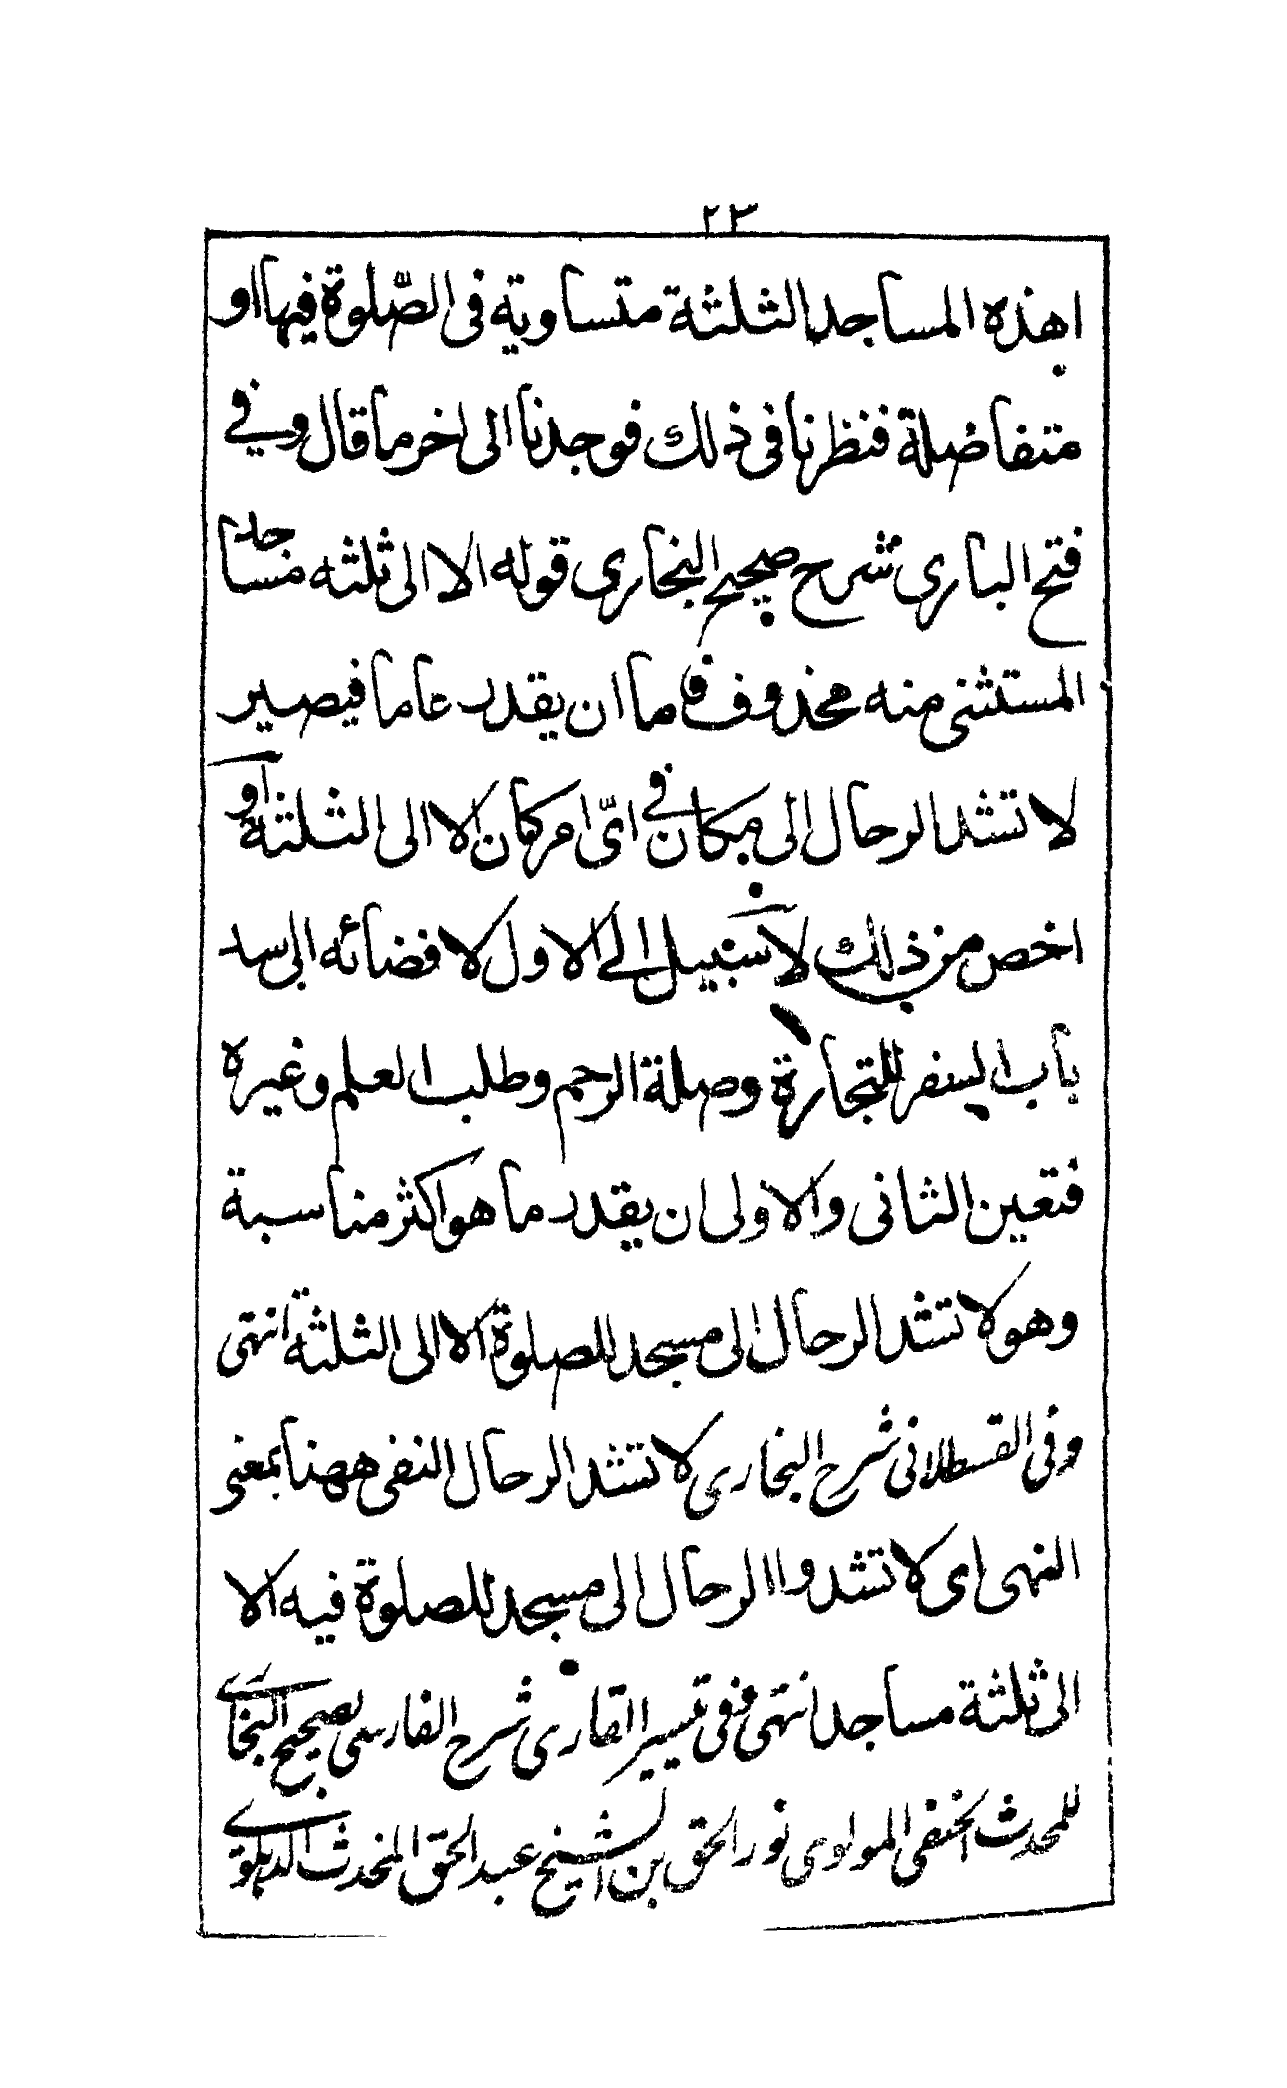 ٢٣
اهذه المساجد الثلثة متساوية فى الصّلوة فيها او
متفاضلة فنظرنا فى ذلك فوجدنا الى اخر ما قال وفي
فتح البارى شرح صحيح البخارى قوله الا الى ثلثه مساجد
المستثنى منه محذوف فاما ان يقدر عاما فيصير
لا تشد الرحال الى مكان في اىّ امر كان الا الى الثلثة او
اخص من ذلك لا سبيل الى الاول لا فضائه الى سد
باب السفر للتجارة وصلة الرحم وطلب العلم وغيره
فتعين الثانى والاولى ان يقدر ما هو اكثر مناسبة
وهو لا تشد الرحال الى مسجد للصلوة الا الى الثلثة انتهى
وفى القسطلانى شرح البخارى لا تشد الرحال النفى ههنا بمعنى
النهى اى لا تشدوا الرحال الى مسجد للصلوة فيه الا
الى ثلثة مساجد انتهى وفى تيسير القارى شرح الفارسى لصحيح البخارى
للمحدث الحنفى المولوى نور الحق بن الشيخ عبد الحق المحدث الدهلوى